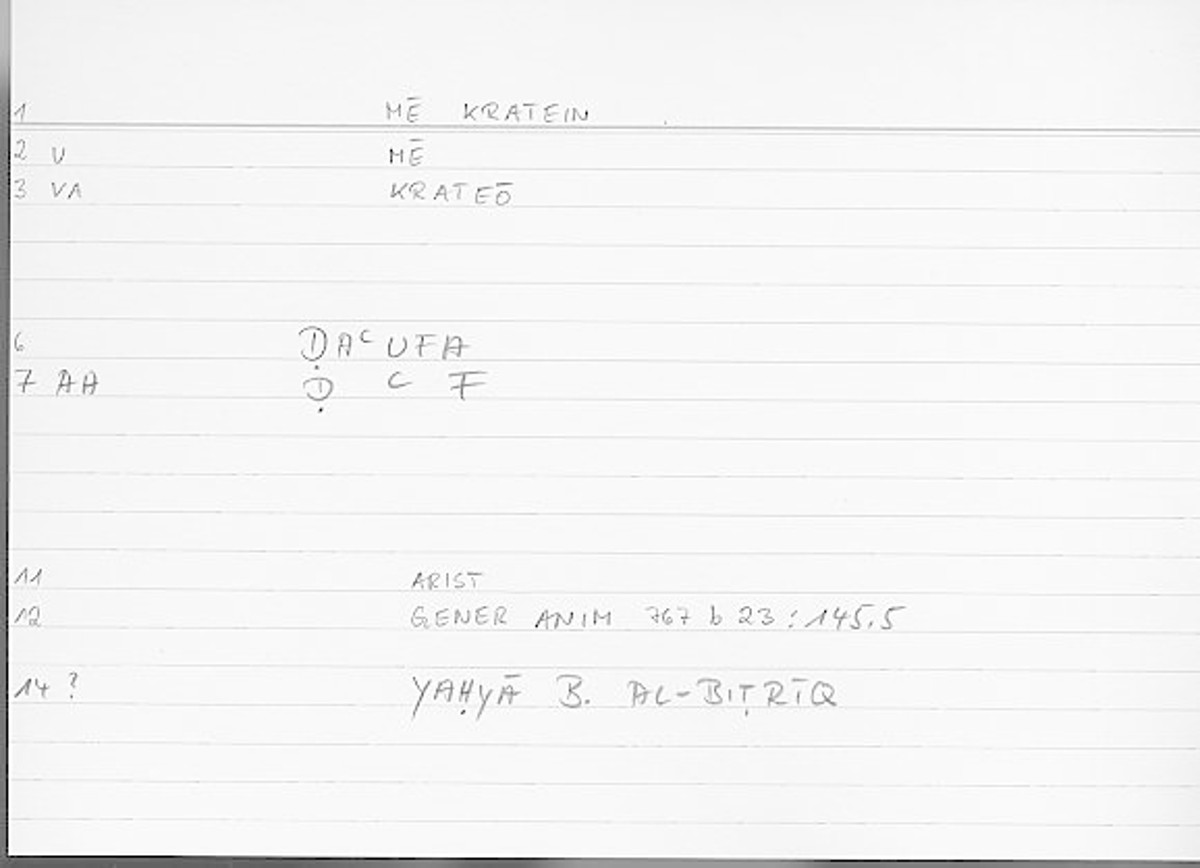 1 MĒ KRATEIN
2 U MĒ
3 VA KRATEŌ
6 ḌAᶜUFA
7 AA Ḍ ᶜ F
11 ARIST
12 GENER ANIM 767 b 23 : 145.5
14 ? YAḤYĀ B. AL-BIṬRĪQ